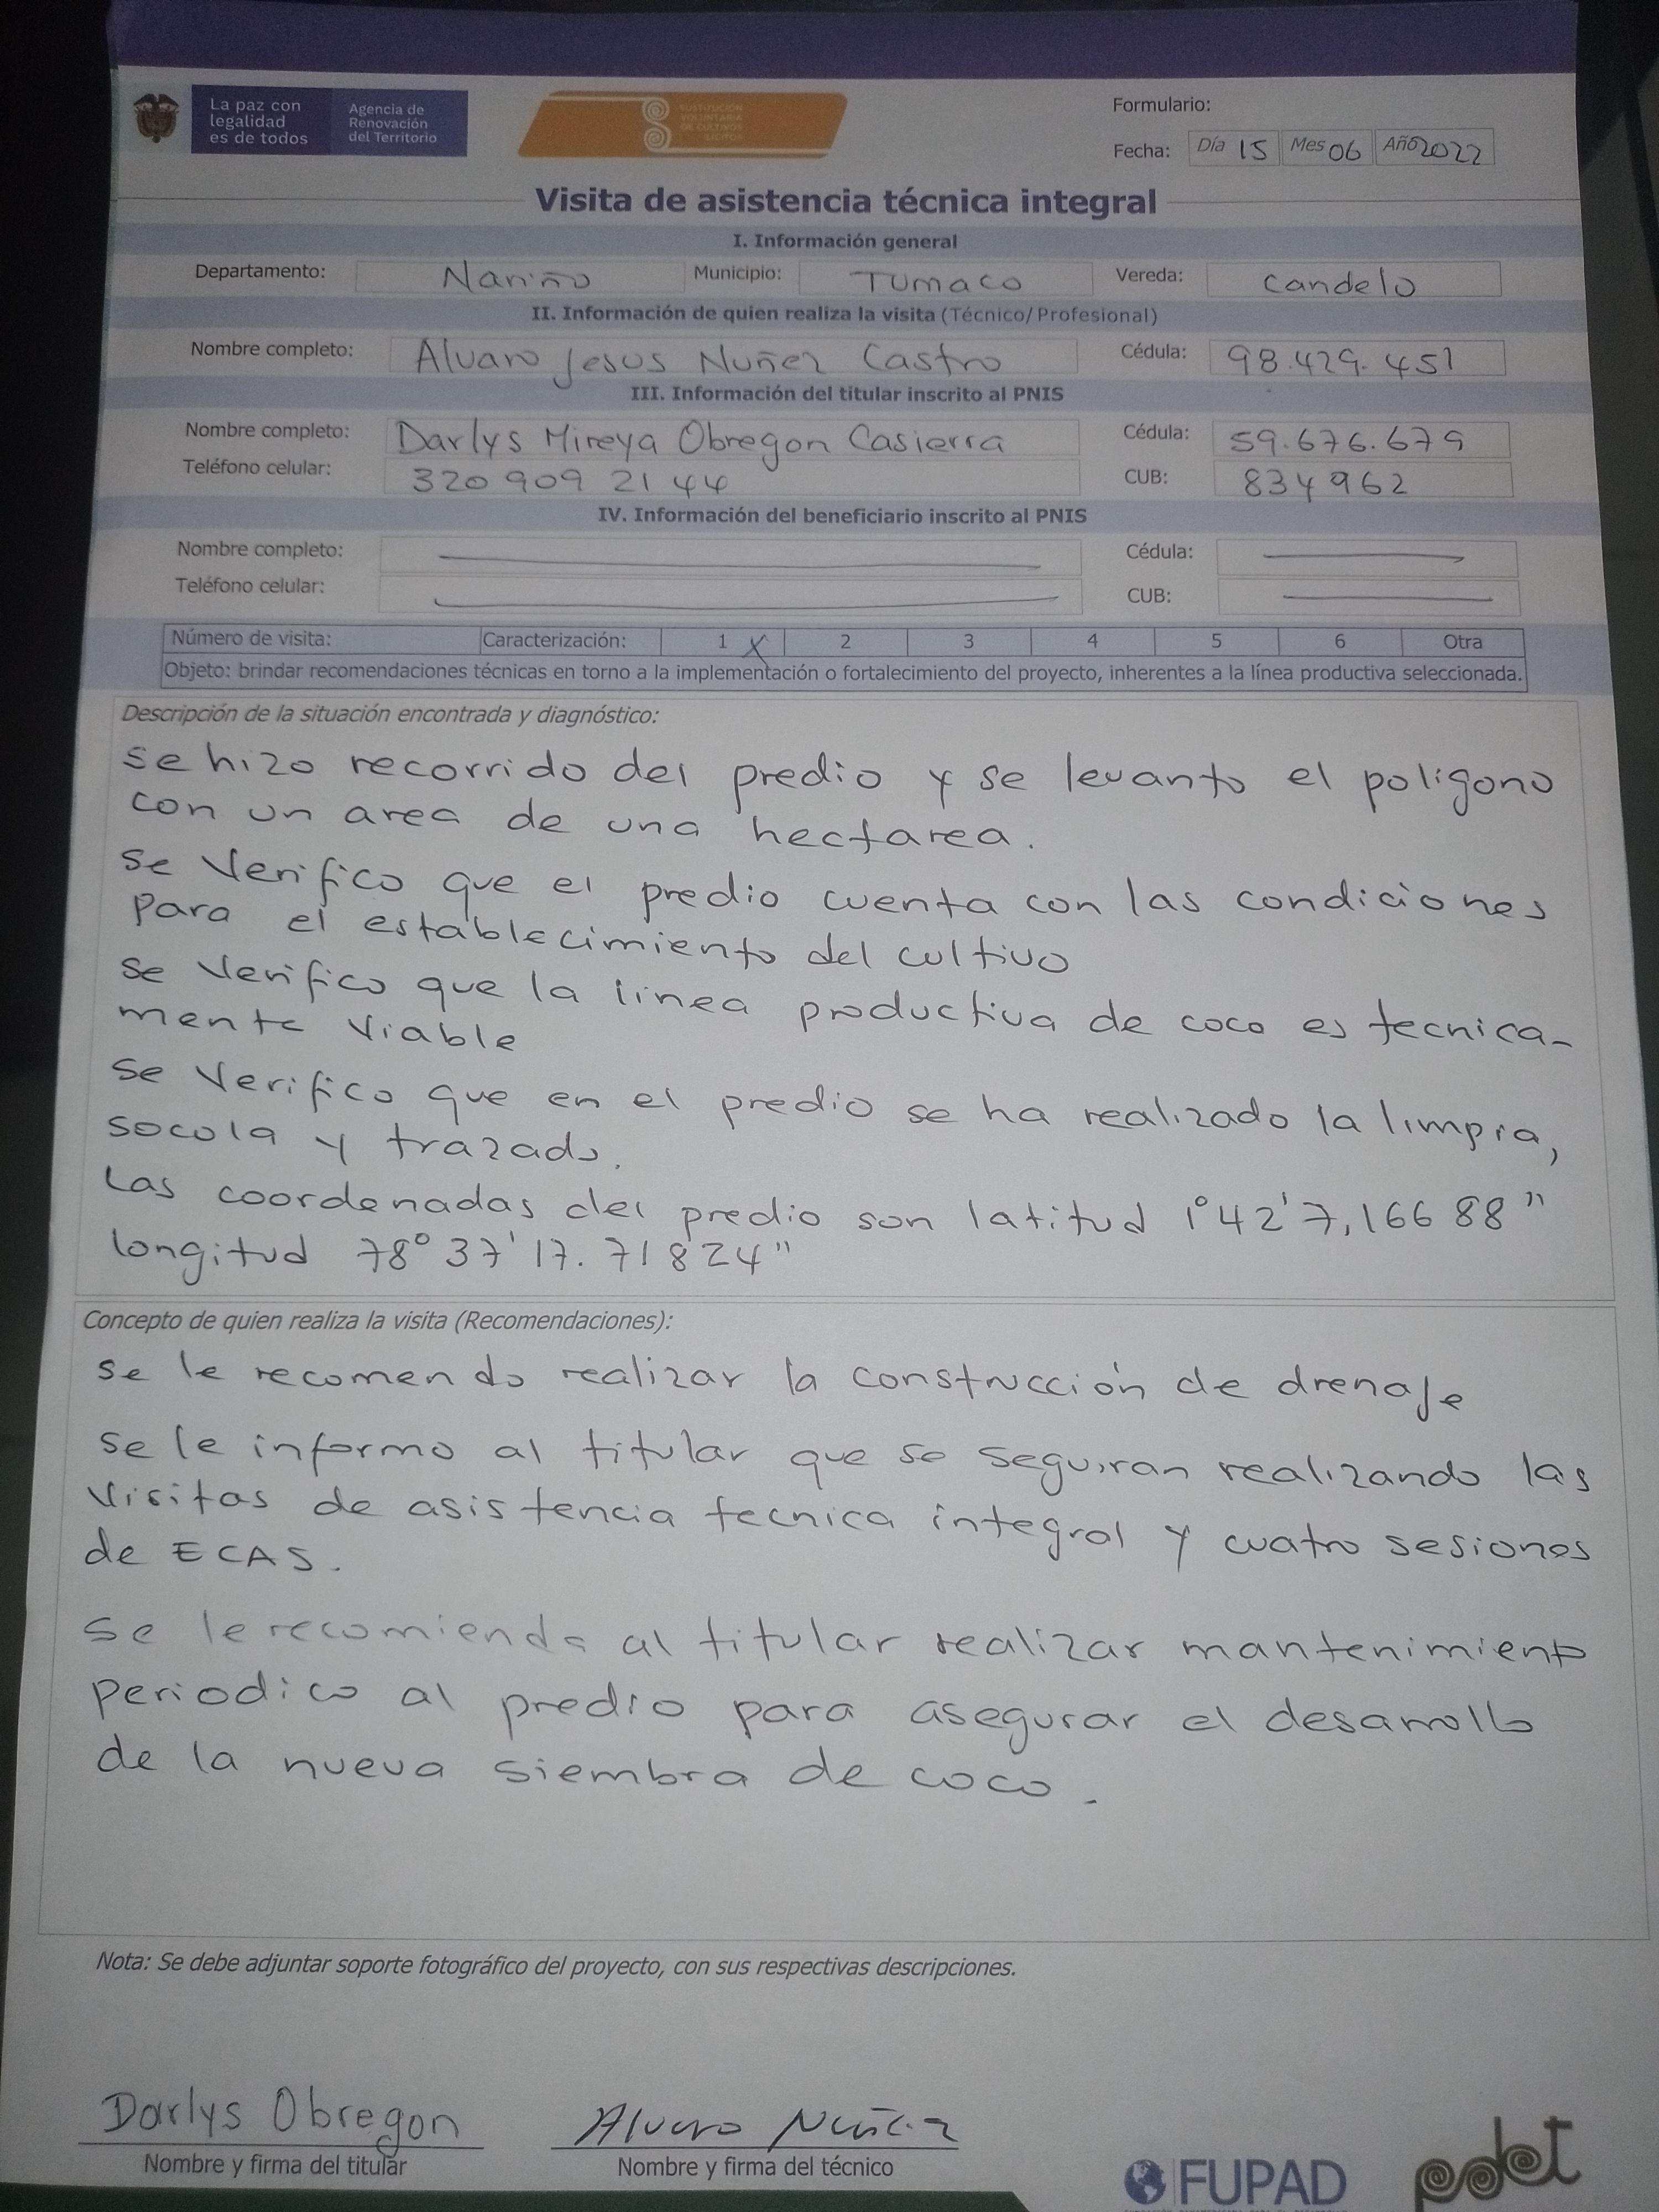 La paz con
legalidad
es de todos
Agencia de
Renovación
del Territorio
SUSTITUCIÓN
VOLUNTARIA
DE CULTIVOS
ILÍCITOS
Formulario:
Fecha: Día 15 Mes 06 Año 2022
Visita de asistencia técnica integral
I. Información general
Departamento: Nariño Municipio: Tumaco Vereda: Candelo
II. Información de quien realiza la visita (Técnico/Profesional)
Nombre completo: Alvaro Jesus Nuñez Castro Cédula: 98.429.451
III. Información del titular inscrito al PNIS
Nombre completo: Darlys Mireya Obregon Casierra Cédula: 59.676.679
Teléfono celular: 320 909 21 44 CUB: 834962
IV. Información del beneficiario inscrito al PNIS
Nombre completo: Cédula:
Teléfono celular: CUB:
Número de visita: Caracterización: 1 X 2 3 4 5 6 Otra
Objeto: brindar recomendaciones técnicas en torno a la implementación o fortalecimiento del proyecto, inherentes a la línea productiva seleccionada.
Descripción de la situación encontrada y diagnóstico:
se hizo recorrido del predio y se levanto el poligono
con un area de una hectarea.
se Verifico que el predio cuenta con las condiciones
para el establecimiento del cultivo
se Verifico que la linea productiva de coco es tecnica-
mente Viable
se Verifico que en el predio se ha realizado la limpia,
socola y trazado.
Las coordenadas del predio son latitud 1°42'7,166 88"
longitud 78°37'17.71824"
Concepto de quien realiza la visita (Recomendaciones):
se le recomendo realizar la construcción de drenaje
se le informo al titular que se seguiran realizando las
Visitas de asistencia tecnica integral y cuatro sesiones
de ECAS.
se le recomienda al titular realizar mantenimiento
periodico al predio para asegurar el desarrollo
de la nueva siembra de coco.
Nota: Se debe adjuntar soporte fotográfico del proyecto, con sus respectivas descripciones.
Darlys Obregon Alvaro Nuñez
Nombre y firma del titular Nombre y firma del técnico
FUPAD
pdet